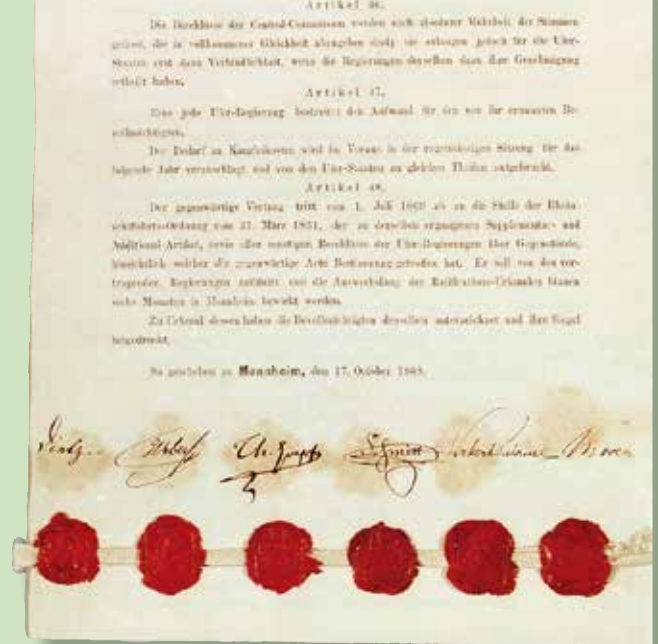 Artikel 46.
Die Beschlüsse der Central-Commission werden nach absoluter Mehrheit der Stimmen
gefasst, die in vollkommener Gleichheit abzugeben sind; sie erlangen jedoch für die Ufer-
Staaten erst dann Verbindlichkeit, wenn die Regierungen derselben dazu ihre Genehmigung
ertheilt haben.
Artikel 47.
Eine jede Ufer-Regierung bestreitet den Aufwand für den von ihr ernannten Be-
vollmächtigten.
Der Bedarf an Kanzleikosten wird im Voraus in der regelmässigen Sitzung für das
folgende Jahr veranschlagt und von den Ufer-Staaten zu gleichen Theilen aufgebracht.
Artikel 48.
Der gegenwärtige Vertrag tritt vom 1. Juli 1869 ab an die Stelle der Rhein-
schifffahrts-Ordnung vom 31. März 1831, der zu derselben ergangenen Supplementar- und
Additional-Artikel, sowie aller sonstigen Beschlüsse der Ufer-Regierungen über Gegenstände,
hinsichtlich welcher die gegenwärtige Acte Bestimmung getroffen hat. Er soll von den ver-
tragenden Regierungen ratificirt und die Auswechslung der Ratifications-Urkunden binnen
sechs Monaten in Mannheim bewirkt werden.
Zu Urkund dessen haben die Bevollmächtigten denselben unterzeichnet und ihre Siegel
beigedruckt.
So geschehen zu Mannheim, den 17. October 1868.
Schmitt